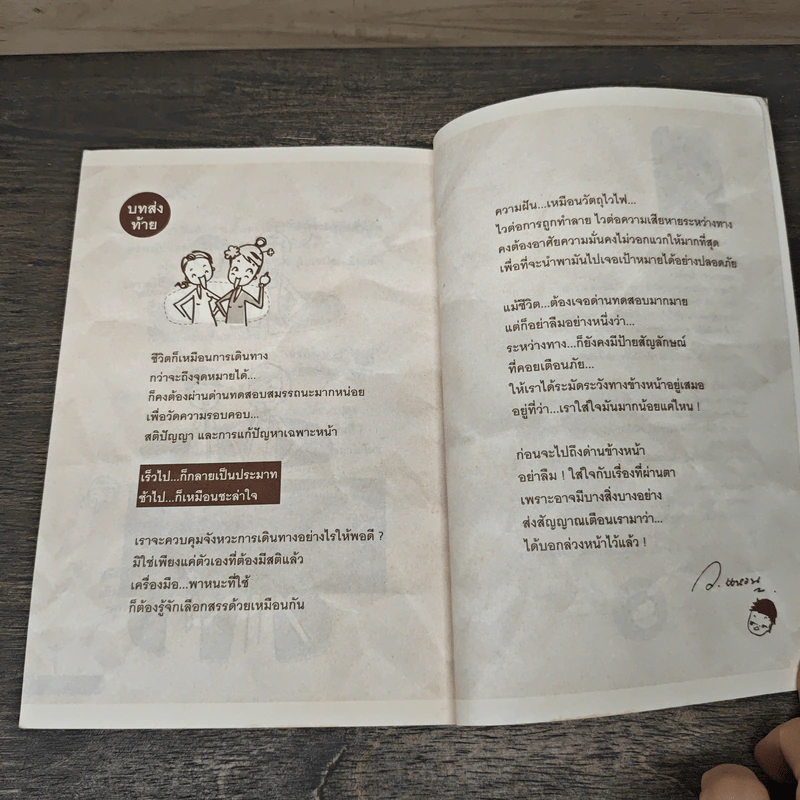 บทส่ง
ท้าย
ชีวิตก็เหมือนการเดินทาง
กว่าจะถึงจุดหมายได้...
ก็คงต้องผ่านด่านทดสอบสมรรถนะมากหน่อย
เพื่อวัดความรอบคอบ...
สติปัญญา และการแก้ปัญหาเฉพาะหน้า
เร็วไป...ก็กลายเป็นประมาท
ช้าไป...ก็เหมือนชะล่าใจ
เราจะควบคุมจังหวะการเดินทางอย่างไรให้พอดี ?
มิใช่เพียงแค่ตัวเองที่ต้องมีสติแล้ว
เครื่องมือ...พาหนะที่ใช้
ก็ต้องรู้จักเลือกสรรด้วยเหมือนกัน
ความฝัน...เหมือนวัตถุไวไฟ...
ไวต่อการถูกทำลาย ไวต่อความเสียหายระหว่างทาง
คงต้องอาศัยความมั่นคงไม่วอกแวกให้มากที่สุด
เพื่อที่จะนำพามันไปเจอเป้าหมายได้อย่างปลอดภัย
แม้ชีวิต...ต้องเจอด่านทดสอบมากมาย
แต่ก็อย่าลืมอย่างหนึ่งว่า...
ระหว่างทาง...ก็ยังคงมีป้ายสัญลักษณ์
ที่คอยเตือนภัย...
ให้เราได้ระมัดระวังทางข้างหน้าอยู่เสมอ
อยู่ที่ว่า...เราใส่ใจมันมากน้อยแค่ไหน !
ก่อนจะไปถึงด่านข้างหน้า
อย่าลืม ! ใส่ใจกับเรื่องที่ผ่านตา
เพราะอาจมีบางสิ่งบางอย่าง
ส่งสัญญาณเตือนเรามาว่า...
ได้บอกล่วงหน้าไว้แล้ว !